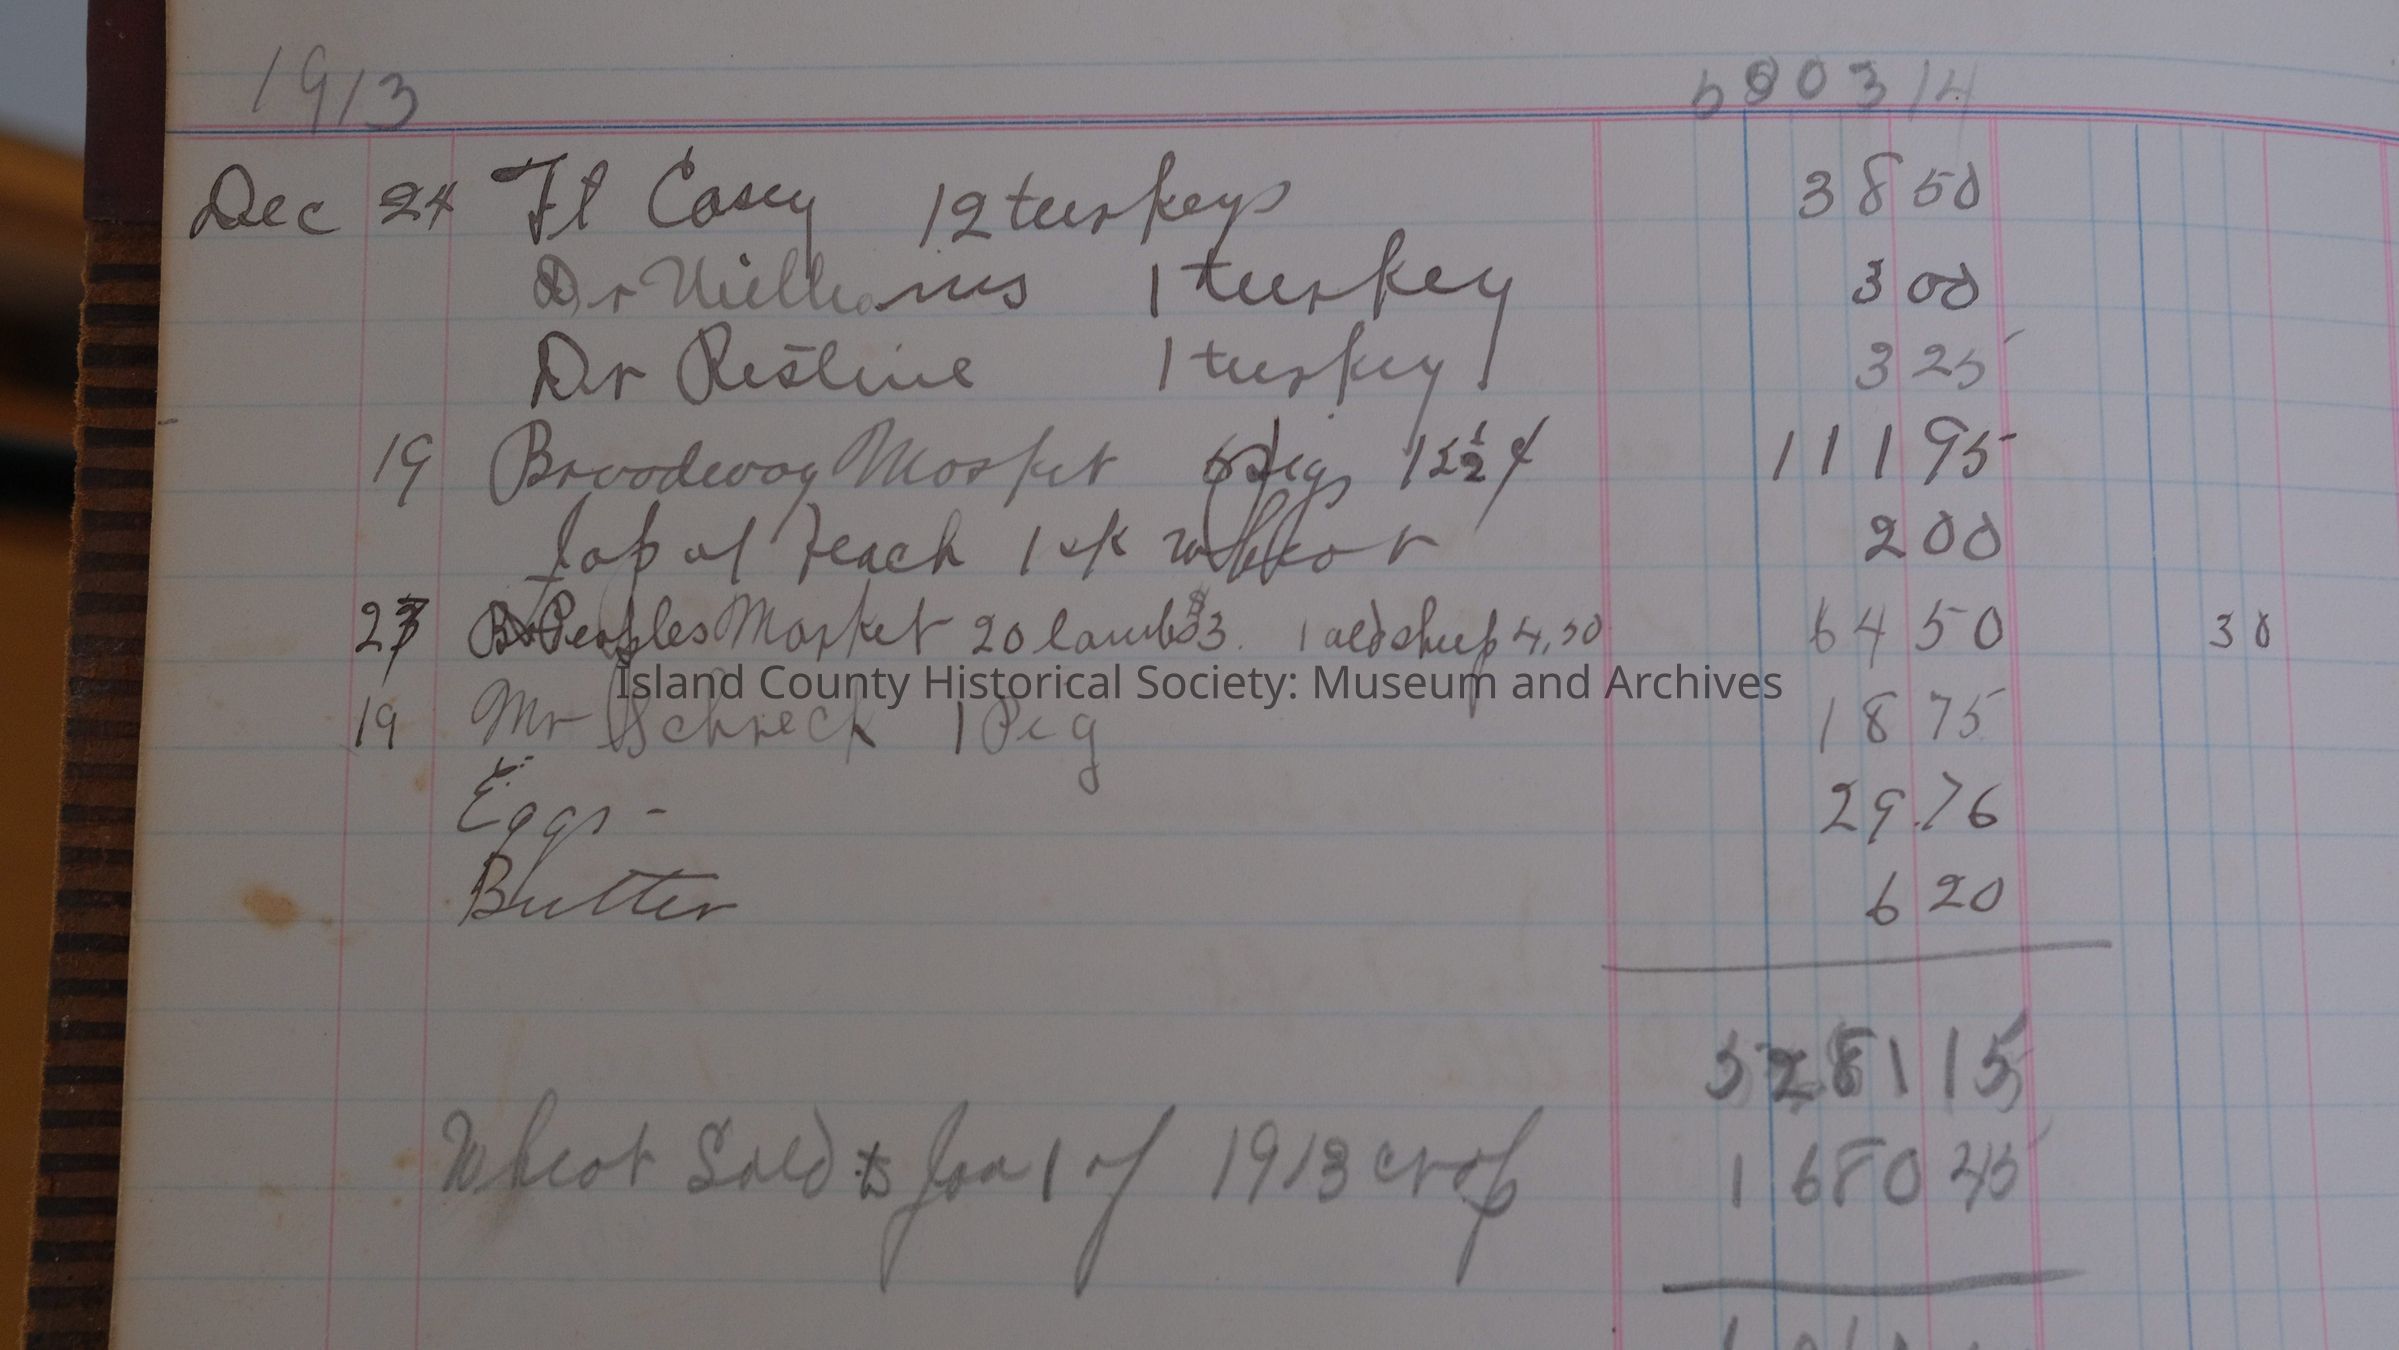 1913 580314
Dec 24 Ft Casey 12 turkeys 38 50
Dr Williams 1 turkey 3 00
Dr Ristine 1 turkey 3 25
19 Broadway Market 6 pigs 12½ ¢ 111 95
Jap at Leach 1 sk wheat 2 00
23 Peoples Market 20 lambs $3. 1 old sheep 4.50 64 50 30
Island County Historical Society: Museum and Archives
19 Mr Schreck 1 Pig 18 75
Eggs - 29.76
Butter 6 20
3281 15
Wheat Sold to Jan 1 of 1913 crop 1680 45